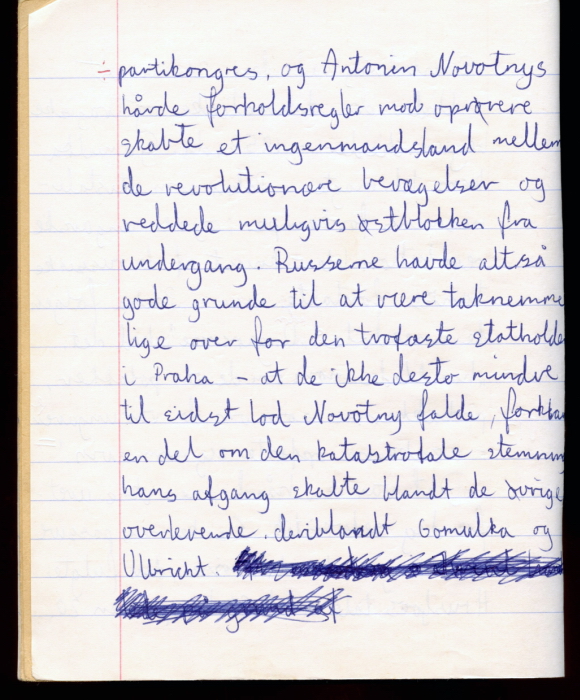 ÷ partikongres, og Antonin Novotnys
hårde forholdsregler mod oprørere
skabte et ingenmandsland mellem
de revolutionære bevægelser og
reddede muligvis østblokken fra
undergang. Russerne havde altså
gode grunde til at være taknemme
lige over for den trofaste statholde
i Praha – at de ikke desto mindre
til sidst lod Novotny falde, forkla
en del om den katastrofale stemning
hans afgang skabte blandt de øvrige
overlevende. deriblandt Gomulka og
Ulbricht.